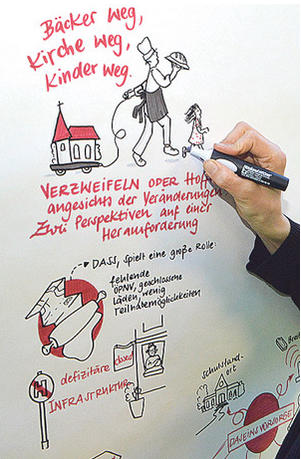 Bäcker weg,
Kirche weg,
Kinder weg.
VERZWEIFELN ODER Hoffen
angesichts der Veränderungen
Zwei Perspektiven auf einer
Herausforderung
DASS, spielt eine große Rolle:
fehlende
ÖPNV, geschlossene
Läden, wenig
Teilhabemöglichkeiten
closed
defizitäre
INFRASTRUKTUR
H
Schulstand-
ort
DASEINSVORSORGE